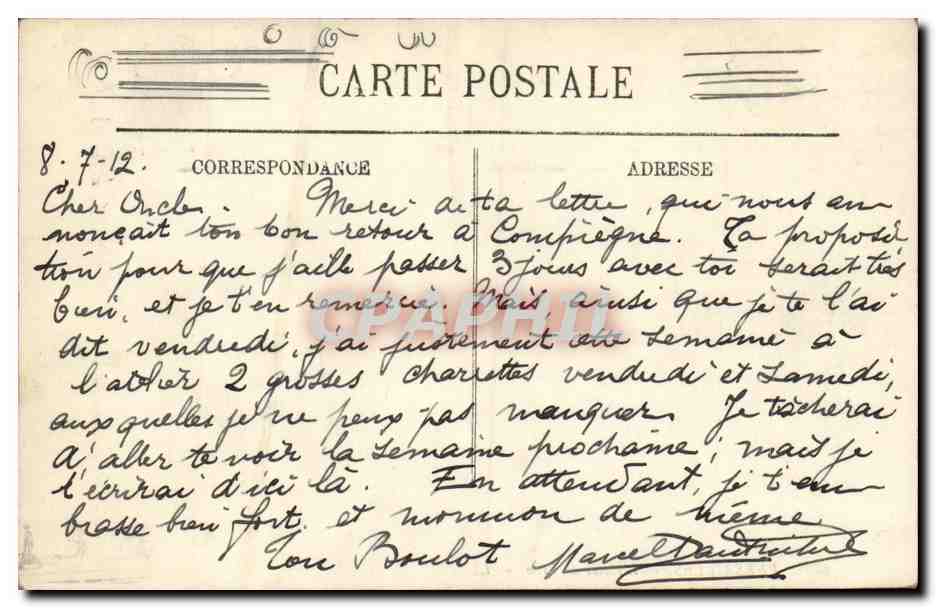 CARTE POSTALE
CORRESPONDANCE
ADRESSE
8.7-12.
Cher Oncle. Merci de ta lettre, qui nous an-
nonçait ton bon retour à Compiègne. Ta proposi
tion pour que j'aille passer 3 jours avec toi serait très
bien, et je t'en remercie. Mais ainsi que je te l'ai
dit vendredi, j'ai justement cette semaine à
l'atelier 2 grosses charrettes vendredi et samedi,
auxquelles je ne peux pas manquer. Je tâcherai
d'aller te voir la semaine prochaine; mais je
t'écrirai d'ici là. En attendant, je t'em-
brasse bien fort. et de même
Ton Boulot Marcel
CPAPHIL